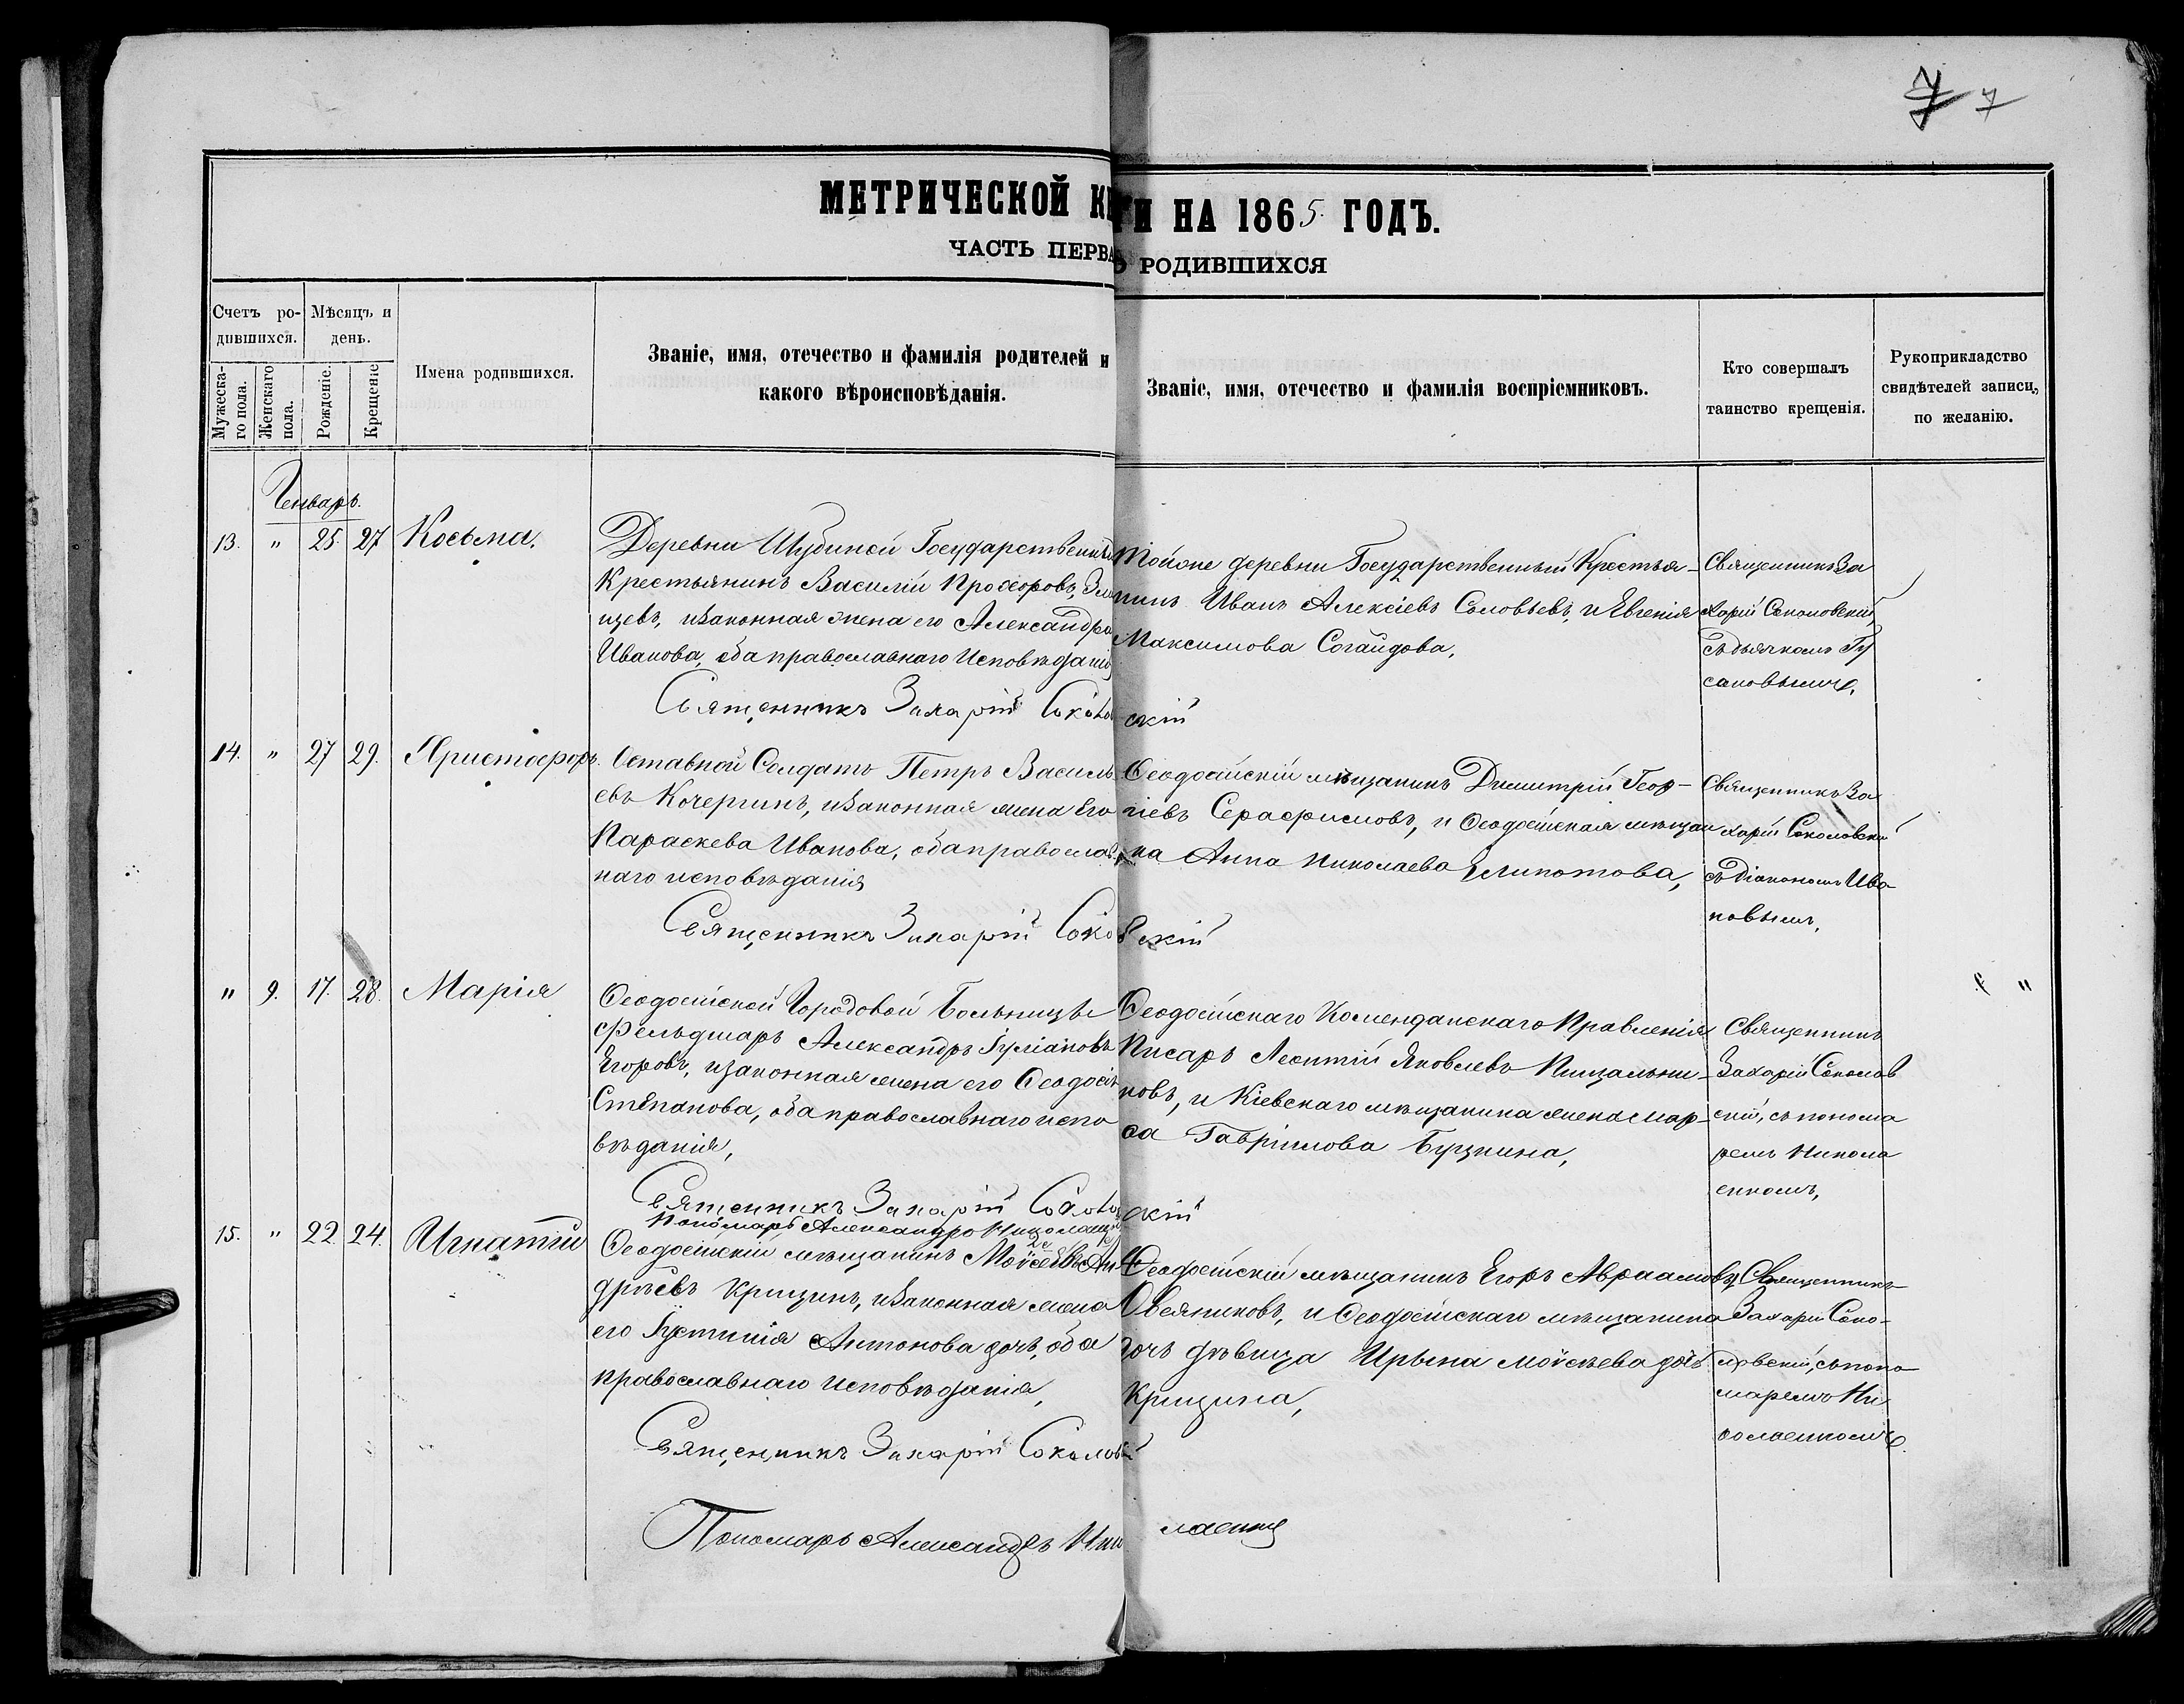 7 7
МЕТРИЧЕСКОЙ КНИГИ НА 1865 ГОДЪ.
ЧАСТЬ ПЕРВА О РОДИВШИХСЯ
Счетъ ро-
дившихся.
Мѣсяцъ и
день.
Мужеска-
го пола.
Женскаго
пола.
Рожденіе.
Крещеніе
Имена родившихся.
Званіе, имя, отечество и фамилія родителей и
какого вѣроисповѣданія.
Званіе, имя, отечество и фамилія воспріемниковъ.
Кто совершалъ
таинство крещенія.
Рукоприкладство
свидѣтелей записи,
по желанію.
Генварь.
13. " 25. 27 Косьма.
Деревни Шубиной Государственный
Крестьянинъ Василій Прохоровъ,
цевъ, и законная жена его Александра
Иванова, оба православнаго Исповѣданія
Тойоже деревни Государственный Крестья-
нинъ Иванъ Алексіевъ Соловьевъ, и Евгенія
Максимова Согайдова,
Священникъ За
харій Соколовскій,
съ дьячкомъ Гу
сановымъ.
Священникъ Захарій Соколовскій
14. " 27 29. Христофоръ.
Оставной Солдатъ Петръ Василь-
евъ Кочергинъ, и законная жена Его
Параскева Иванова, оба православ-
наго исповѣданія
Ѳеодосійскій мѣщанинъ Димитрій Геор-
гіевъ Серафимовъ, и Ѳеодосійская мѣщан
ка Анна Николаева Филипотова,
Священникъ За
харій Соколовскій
съ Діакономъ Ива
новымъ,
Священникъ Захарій Соковскій
" 9. 17. 28. Марія
Ѳеодосійской Городовой Больницы
Фельдшаръ Александръ Іуліановъ
Егоровъ, и законная жена его Ѳеодосія
Степанова, оба православнаго испо
вѣданія,
Ѳеодосійскаго Коменданскаго Правленія
Писарь Леонтій Яковлевъ Пищальни-
ковъ, и Кіевскаго мѣщанина жена Мар-
ѳа Гавріилова Бузкина,
Священникъ
Захарій Соколов
скій, съ понома
ремъ Никола
енкомъ,
Священникъ Захарій Соколовскій
Пономарь Александръ Николаенко
15. " 22. 24. Игнатій
Ѳеодосійскій мѣщанинъ Моѵсей Ан-
дреевъ Крицинъ, и законная жена
его Іустинія Антонова дочь, оба
православнаго исповѣданія,
Ѳеодосійскій мѣщанинъ Егоръ Авраамовъ
Овсяниковъ, и Ѳеодосійскаго мѣщанина
дочь дѣвица Ирына Моѵсѣева дочь
Крицина,
Священникъ
Захарій Соко-
ловскій, съ поно
маремъ Ни
колаенкомъ.
Священникъ Захарій Соколовскій
Пономарь Александръ Николаенко